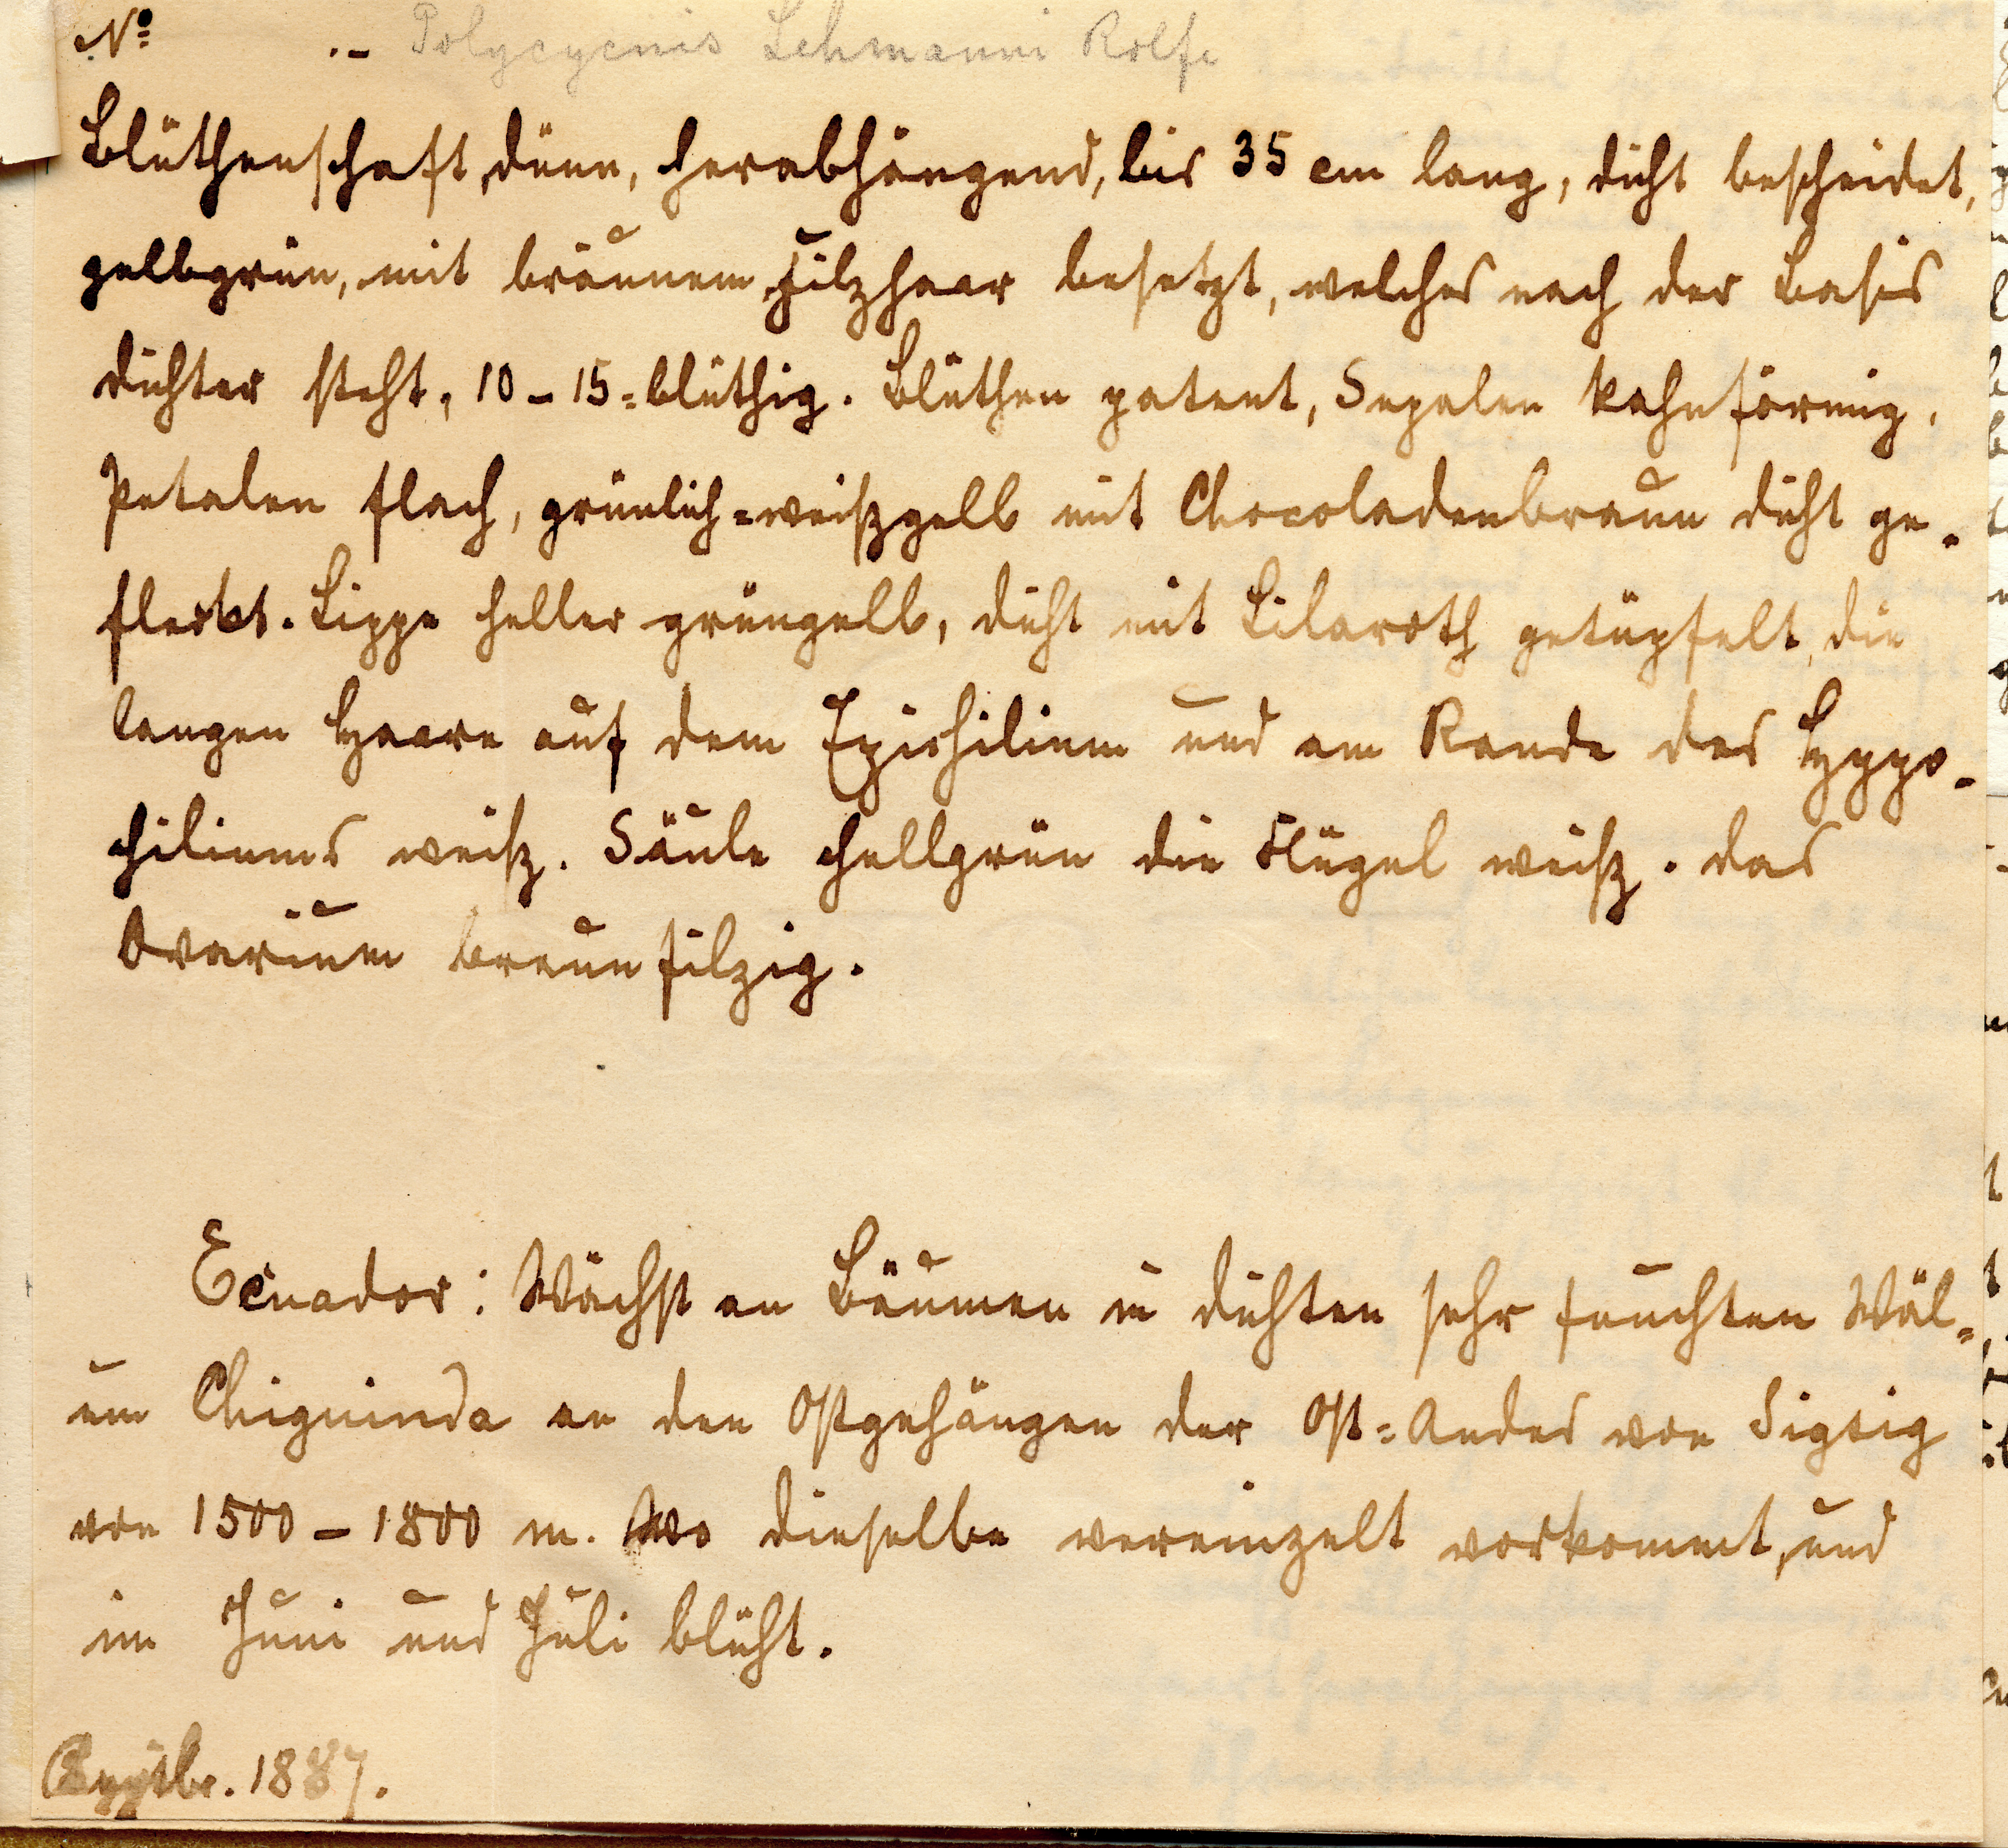 Nº .- Polycycnis Lehmanni Rolfe
Blüthenschaft dünn, herabhängend, bis 35 cm lang, dicht bescheidet,
gelbgrün, mit braunem Filzhaar besetzt, welches nach der Basis
dichter steht, 10-15=blüthig. Blüthen patent, Sepalen kahnförmig,
Petalen flach, grünlich=weißgelb mit Chocoladenbraun dicht ge-
fleckt. Lippe heller grüngelb, dicht mit Lilaroth getüpfelt, die
langen Haare auf dem Epichilium und am Rande des Hypo-
chiliums weiß. Säule hellgrün die Flügel weiß. das
Ovarium braunfilzig.
Ecuador: Wächst an Bäumen in dichten sehr feuchten Wäl=
um Chiguinda an den Ostgehängen der Ost=Andes von Sigsig
von 1500-1800 m. Wo dieselbe vereinzelt vorkommt, und
im Juni und Juli blüht.
1887.